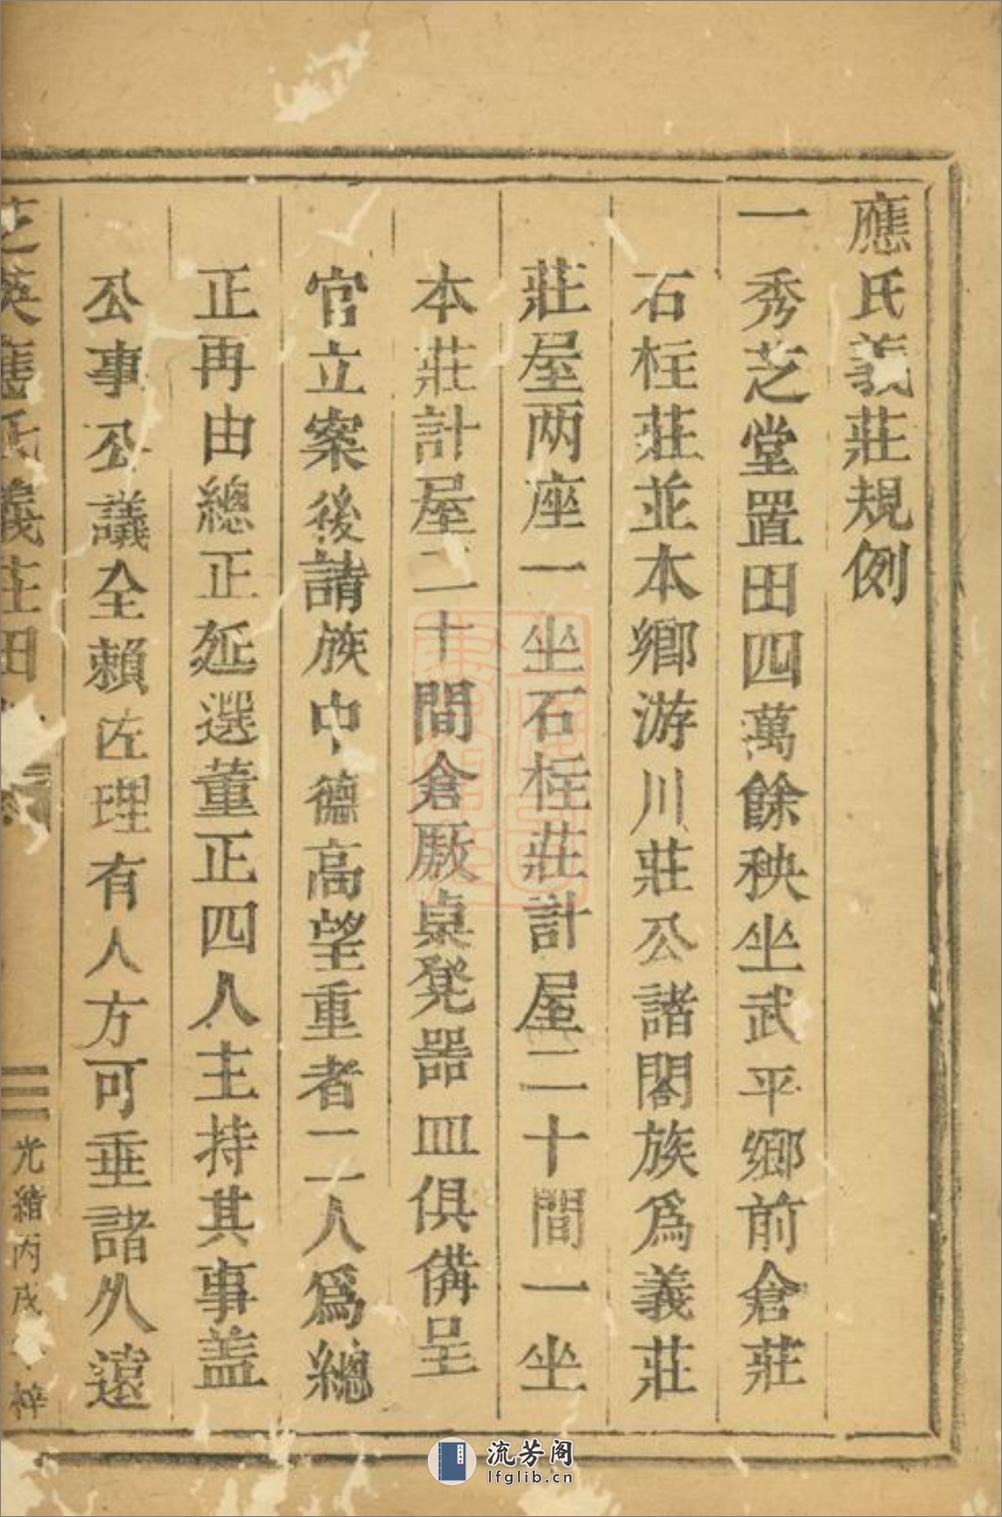 應氏義莊規例
一 秀芝堂置田四萬餘秧坐武平鄉前倉莊
石柱莊並本鄉游川莊公諸閤族爲義莊
莊屋兩座一坐石柱莊計屋二十間一坐
本莊計屋二十間倉厫桌凳器皿俱備呈
官立案後請族中德高望重者一二人爲總
正再由總正延選董正四人主持其事蓋
公事公議全賴佐理有人方可垂諸久遠
芝英應氏義莊田
光緒丙戌 梓
流芳阁
lfglib.cn